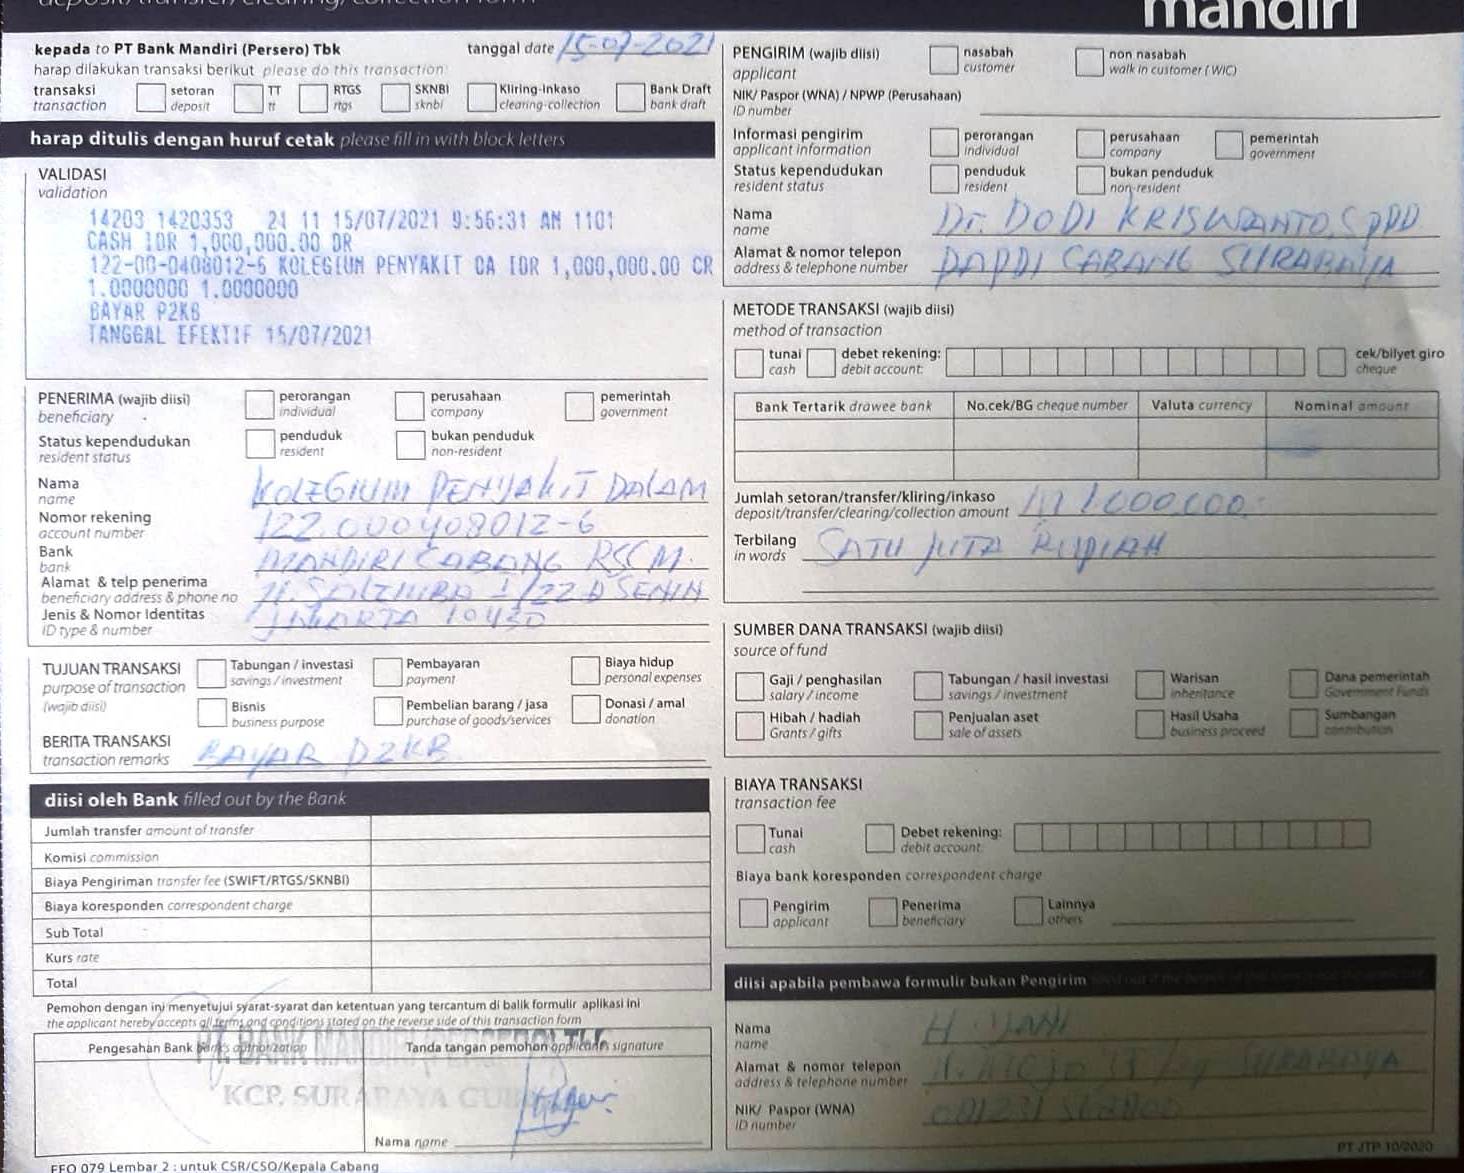 deposit/transfer/clearing/collection form
mandiri
kepada to PT Bank Mandiri (Persero) Tbk
tanggal date 15-07-2021
harap dilakukan transaksi berikut please do this transaction:
transaksi transaction
setoran deposit
TT tt
RTGS rtgs
SKNBI sknbi
Kliring-inkaso clearing-collection
Bank Draft bank draft
harap ditulis dengan huruf cetak please fill in with block letters
VALIDASI
validation
14203 1420353 21 11 15/07/2021 9:56:31 AM 1101
CASH IDR 1,000,000.00 DR
122-00-0408012-6 KOLEGIUM PENYAKIT CA IDR 1,000,000.00 CR
1.0000000 1.0000000
BAYAR P2KB
TANGGAL EFEKTIF 15/07/2021
PENERIMA (wajib diisi)
beneficiary
perorangan individual
perusahaan company
pemerintah government
Status kependudukan
resident status
penduduk resident
bukan penduduk non-resident
Nama name KOLEGIUM PENYAKIT DALAM
Nomor rekening account number 122.000408012-6
Bank bank MANDIRI CABANG RSCM.
Alamat & telp penerima
beneficiary address & phone no
Jenis & Nomor Identitas
ID type & number JAKARTA 10430
TUJUAN TRANSAKSI
purpose of transaction
(wajib diisi)
Tabungan / investasi savings / investment
Pembayaran payment
Biaya hidup personal expenses
Bisnis business purpose
Pembelian barang / jasa purchase of goods/services
Donasi / amal donation
BERITA TRANSAKSI
transaction remarks BAYAR P2KB
diisi oleh Bank filled out by the Bank
Jumlah transfer amount of transfer
Komisi commission
Biaya Pengiriman transfer fee (SWIFT/RTGS/SKNBI)
Biaya koresponden correspondent charge
Sub Total
Kurs rate
Total
Pemohon dengan ini menyetujui syarat-syarat dan ketentuan yang tercantum di balik formulir aplikasi ini
the applicant hereby accepts all terms and conditions stated on the reverse side of this transaction form
Pengesahan Bank bank's authorization
Tanda tangan pemohon applicants signature
PT. BANK MANDIRI (PERSERO) Tbk
KCP. SURABAYA
Nama name
FFO 079 Lembar 2 : untuk CSR/CSO/Kepala Cabang
PENGIRIM (wajib diisi)
applicant
nasabah customer
non nasabah walk in customer (WIC)
NIK/ Paspor (WNA) / NPWP (Perusahaan)
ID number
Informasi pengirim
applicant information
perorangan individual
perusahaan company
pemerintah government
Status kependudukan
resident status
penduduk resident
bukan penduduk non-resident
Nama name Dr. DODI KRISWANTO, SpPD
Alamat & nomor telepon
address & telephone number PAPDI CABANG SURABAYA
METODE TRANSAKSI (wajib diisi)
method of transaction
tunai cash
debet rekening: debit account:
cek/bilyet giro cheque
Bank Tertarik drawee bank
No.cek/BG cheque number
Valuta currency
Nominal amount
Jumlah setoran/transfer/kliring/inkaso
deposit/transfer/clearing/collection amount 1.000.000.-
Terbilang in words SATU JUTA RUPIAH
SUMBER DANA TRANSAKSI (wajib diisi)
source of fund
Gaji / penghasilan salary / income
Tabungan / hasil investasi savings / investment
Warisan inheritance
Dana pemerintah Government Funds
Hibah / hadiah Grants / gifts
Penjualan aset sale of assets
Hasil Usaha business proceed
Sumbangan contribution
BIAYA TRANSAKSI
transaction fee
Tunai cash
Debet rekening: debit account:
Biaya bank koresponden correspondent charge
Pengirim applicant
Penerima beneficiary
Lainnya others
diisi apabila pembawa formulir bukan Pengirim
Nama name H. YANI
Alamat & nomor telepon
address & telephone number SURABAYA
NIK/ Paspor (WNA)
ID number
PT JTP 10/2020